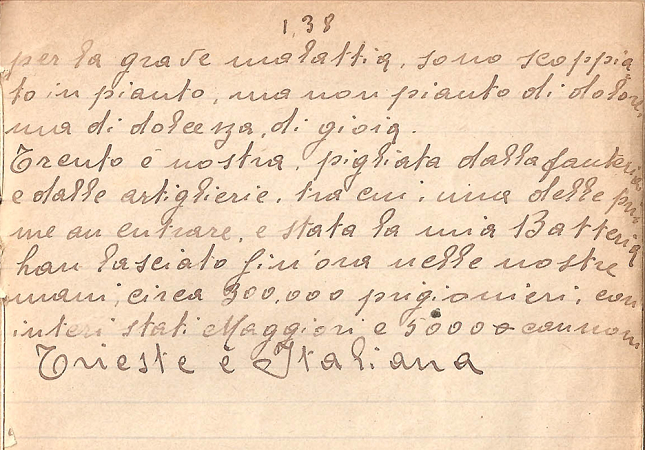 138
per la grave malattia, sono scoppia
to in pianto, ma non pianto di dolore,
ma di dolcezza, di gioia.
Trento è nostra, pigliata dalla fanteria
e dalle artiglierie, tra cui, una delle pri
me an entrare, e stata la mia Batteria
han lasciato fin'ora nelle nostre
mani, circa 300,000 prigionieri, con
interi stati Maggiori e 5000 cannoni
Trieste è Italiana